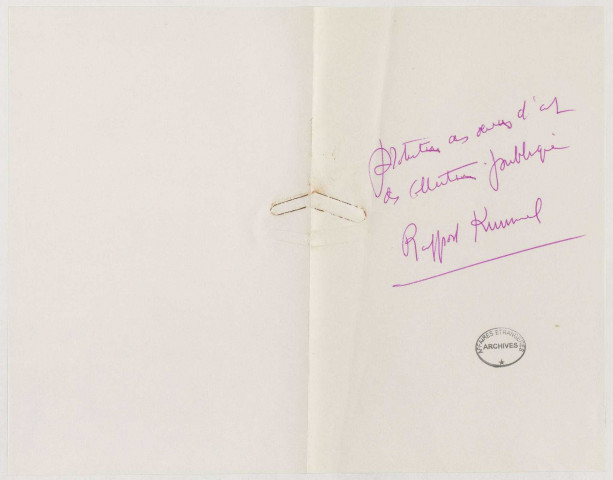 Protection des œuvres d'art
des collections publiques
Rapport Kummel
AFFAIRES ETRANGERES
ARCHIVES